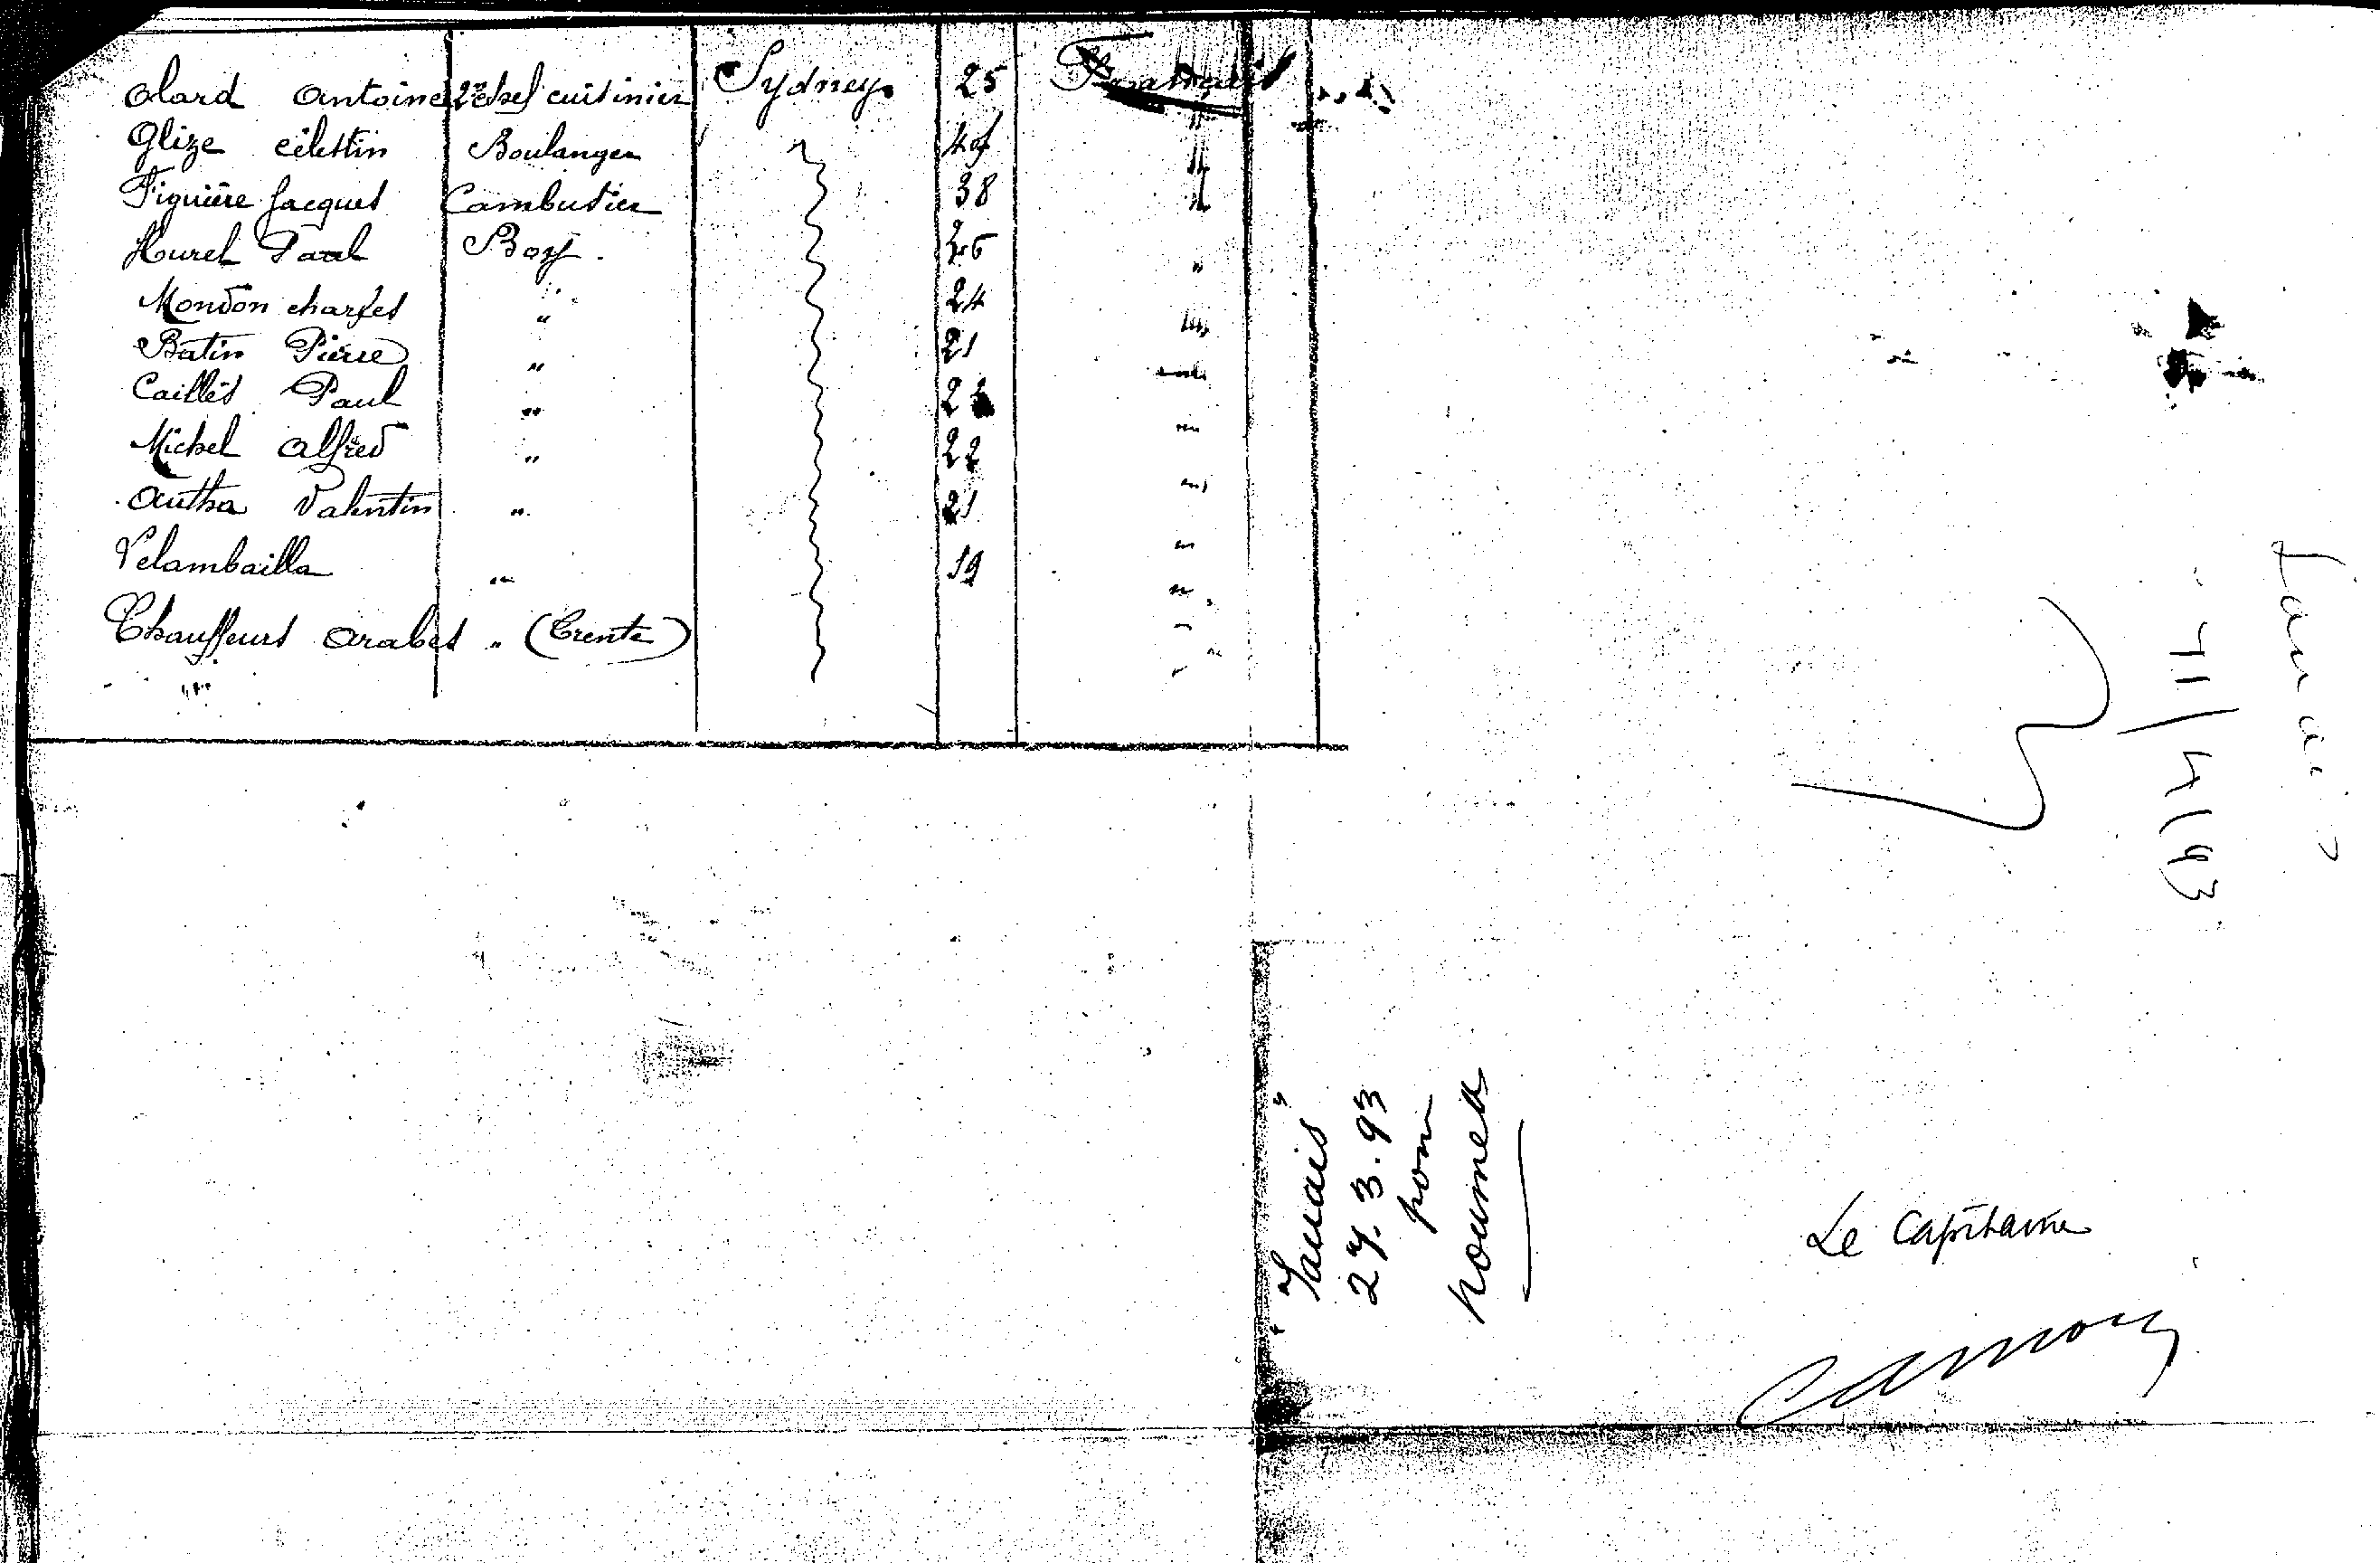 Olard Antoine 2e chef cuisinier Sydney. 25 Français
Glize Célestin Boulanger 47 "
Figuière Jacques Cambusier 38 "
Hurel Paul Boy. 26 "
Mondon Charles " 24 "
Batin Pierre " 21 "
Caillés Paul " 22 "
Michel Alfred " 22 "
Autha Valentin " 21 "
Velambailla " 19 "
Chauffeurs Arabes " (Trente)
"Tanais"
27.3.93
from
Noumea
Le Capitaine
Tanais